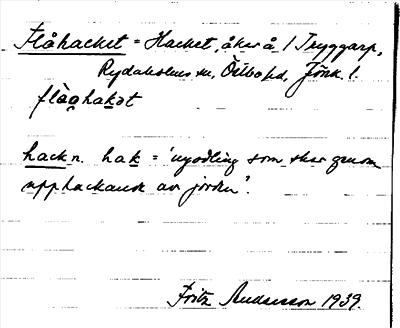 Flåhacket = Hacket, åker å 1 Tryggarp,
Rydaholms sn, Östbo hd, Jönk. l.
flåǫhakət
hack n. hak = 'nyodling som sker genom
upphackande av jorden'.
Fritz Andersson 1939.